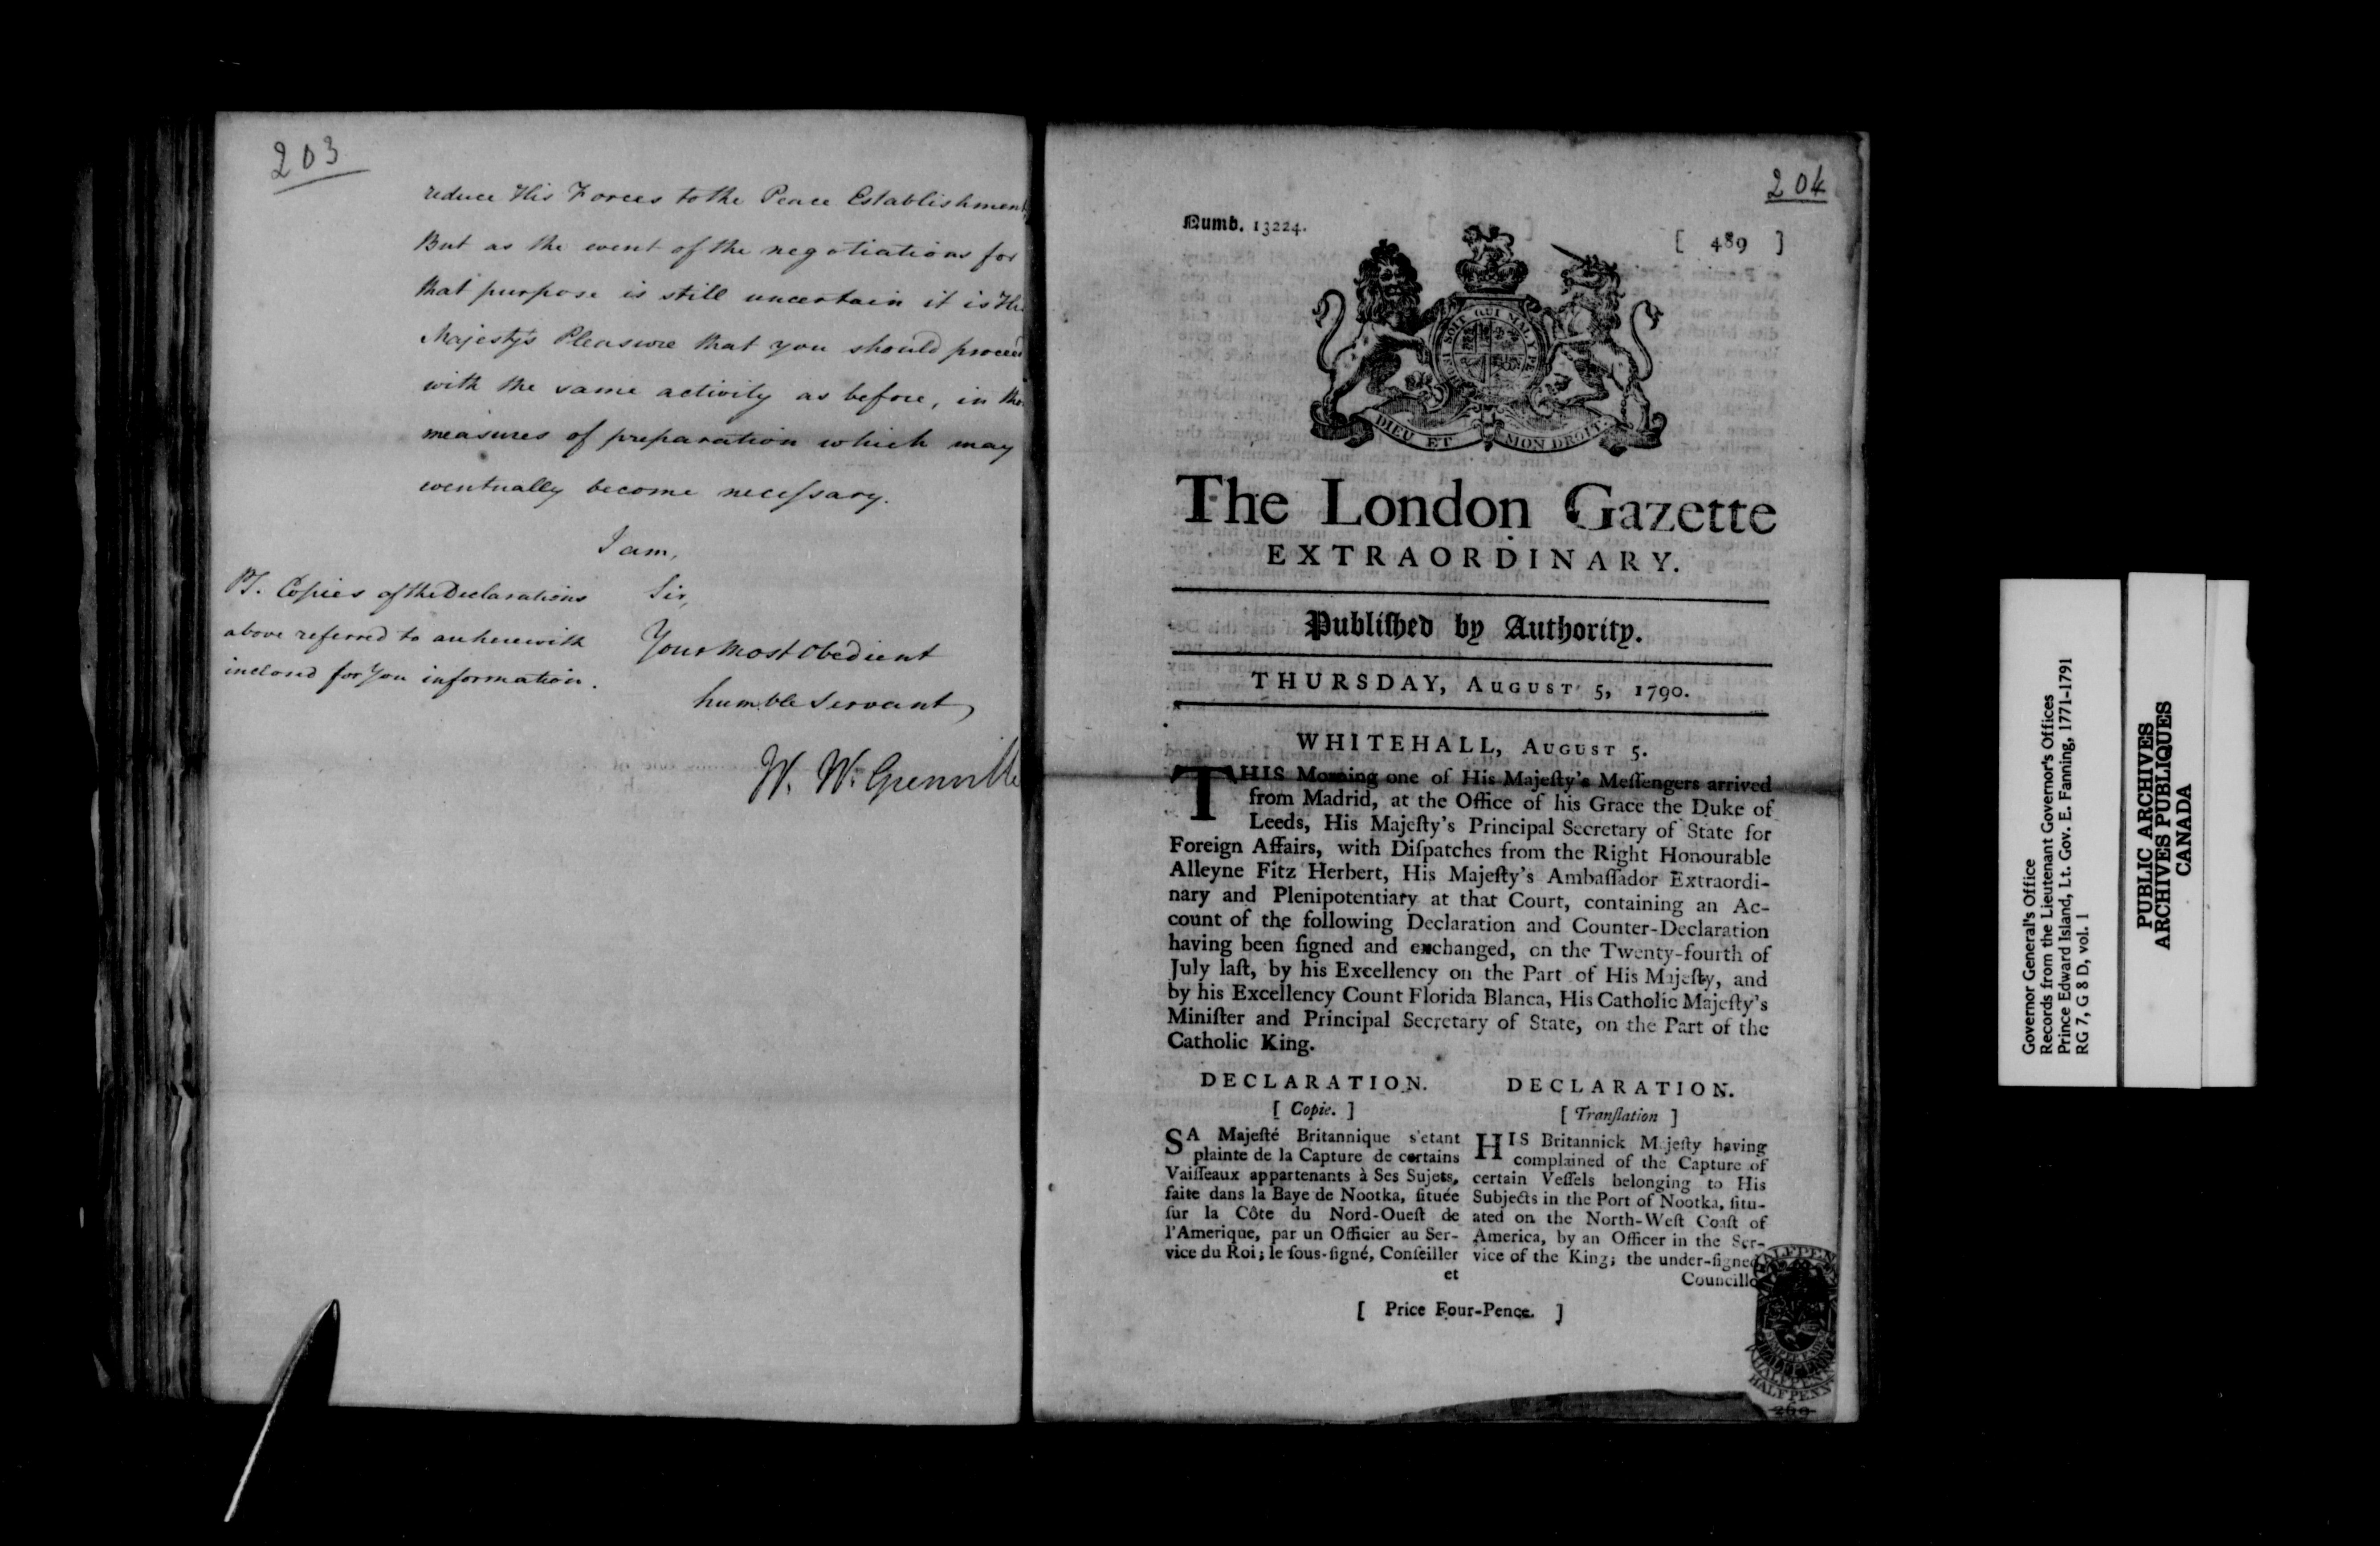 203
reduce His Forces to the Peace Establishment
But as the event of the negotiations for
that purpose is still uncertain it is His
Majesty's Pleasure that you should proceed
with the same activity as before, in
measures of preparation which may
eventually become neceſsary.
I am,
Sir,
Your most Obedient
humble Servant
W. W. Grenville
PS. Copies of the Declarations
above referred to are herewith
inclosd for You information.
204
Numb. 13224.
[ 489 ]
HONI SOIT QUI MAL Y PENSE
DIEU ET MON DROIT.
The London Gazette
EXTRAORDINARY.
Publiſhed by Authority.
THURSDAY, AUGUST 5, 1790.
WHITEHALL, AUGUST 5.
THIS Morning one of His Majeſty's Meſſengers arrived
from Madrid, at the Office of his Grace the Duke of
Leeds, His Majeſty's Principal Secretary of State for
Foreign Affairs, with Diſpatches from the Right Honourable
Alleyne Fitz Herbert, His Majeſty's Ambaſſador Extraordi-
nary and Plenipotentiary at that Court, containing an Ac-
count of the following Declaration and Counter-Declaration
having been ſigned and exchanged, on the Twenty-fourth of
July laſt, by his Excellency on the Part of His Majeſty, and
by his Excellency Count Florida Blanca, His Catholic Majeſty's
Miniſter and Principal Secretary of State, on the Part of the
Catholic King.
DECLARATION.
[ Copie. ]
SA Majeſté Britannique s'etant
plainte de la Capture de certains
Vaiſſeaux appartenants à Ses Sujets,
faite dans la Baye de Nootka, ſituée
ſur la Côte du Nord-Oueſt de
l'Amerique, par un Officier au Ser-
vice du Roi; le ſous-ſigné, Conſeiller
et
DECLARATION.
[ Tranſlation ]
HIS Britannick Majeſty having
complained of the Capture of
certain Veſſels belonging to His
Subjects in the Port of Nootka, ſitu-
ated on the North-Weſt Coaſt of
America, by an Officer in the Ser-
vice of the King; the under-ſigned
Councillo
[ Price Four-Pence. ]
HALFPENNY
HALFPENNY
HALFPENNY
HALFPENNY
260
Governor General's Office
Records from the Lieutenant Governor's Offices
Prince Edward Island, Lt. Gov. E. Fanning, 1771-1791
RG 7, G 8 D, vol. 1
PUBLIC ARCHIVES
ARCHIVES PUBLIQUES
CANADA